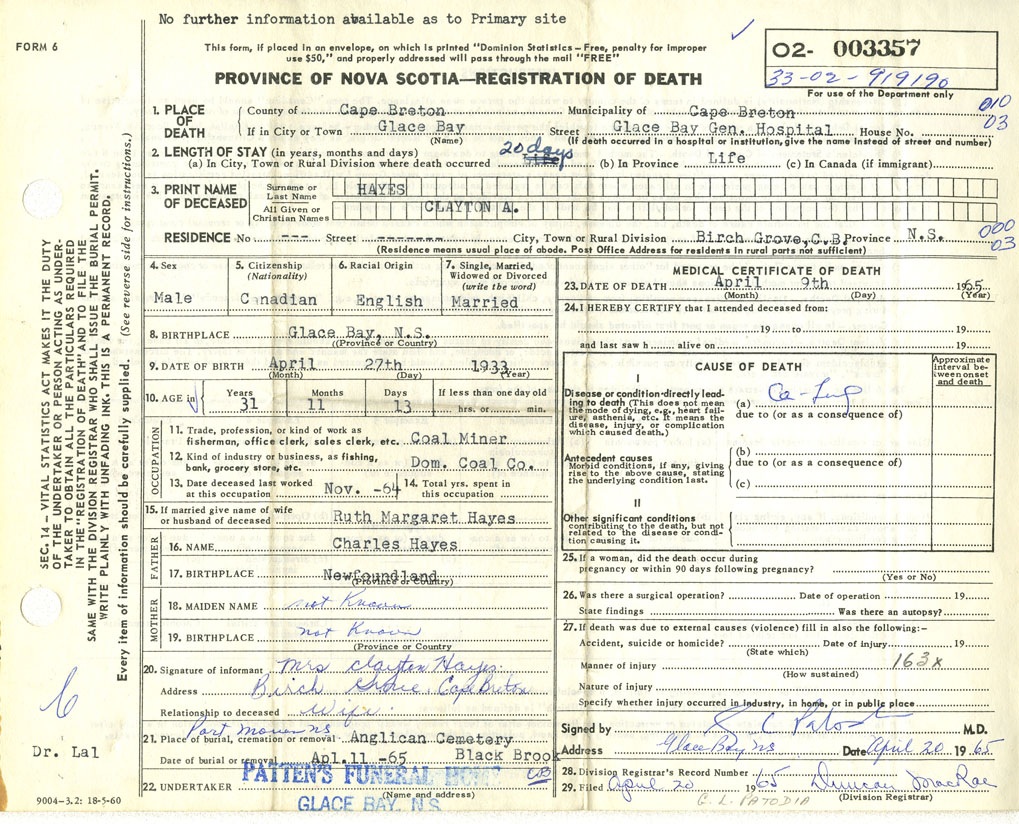 No further information available as to Primary site
FORM 6
This form, if placed in an envelope, on which is printed "Dominion Statistics – Free, penalty for improper
use $50," and properly addressed will pass through the mail "FREE"
PROVINCE OF NOVA SCOTIA—REGISTRATION OF DEATH
02- 003357
33-02-919190
For use of the Department only
1. PLACE OF DEATH
County of Cape Breton Municipality of Cape Breton 010
If in City or Town Glace Bay Street Glace Bay Gen. Hospital House No. 03
(Name) (If death occurred in a hospital or institution, give the name instead of street and number)
2. LENGTH OF STAY (in years, months and days)
(a) In City, Town or Rural Division where death occurred 20 days (b) In Province Life (c) In Canada (if immigrant)
3. PRINT NAME OF DECEASED
Surname or Last Name HAYES
All Given or Christian Names CLAYTON A.
RESIDENCE No --- Street ------- City, Town or Rural Division Birch Grove, C.B. Province N.S. 000
03
(Residence means usual place of abode. Post Office Address for residents in rural parts not sufficient)
4. Sex Male
5. Citizenship (Nationality) Canadian
6. Racial Origin English
7. Single, Married, Widowed or Divorced (write the word) Married
8. BIRTHPLACE Glace Bay, N.S.
(Province or Country)
9. DATE OF BIRTH April 27th 1933
(Month) (Day) (Year)
10. AGE in Years 31 Months 11 Days 13 If less than one day old hrs. or min.
OCCUPATION
11. Trade, profession, or kind of work as
fisherman, office clerk, sales clerk, etc. Coal Miner
12. Kind of industry or business, as fishing,
bank, grocery store, etc. Dom. Coal Co.
13. Date deceased last worked
at this occupation Nov. -64
14. Total yrs. spent in
this occupation
15. If married give name of wife
or husband of deceased Ruth Margaret Hayes
FATHER
16. NAME Charles Hayes
17. BIRTHPLACE Newfoundland
(Province or Country)
MOTHER
18. MAIDEN NAME not Known
19. BIRTHPLACE not Known
(Province or Country)
20. Signature of informant Mrs Clayton Hayes.
Address Birch Grove. Cape Breton
Relationship to deceased Wife.
Port Morien NS
21. Place of burial, cremation or removal Anglican Cemetery
Date of burial or removal Apl.11 -65 Black Brook
CB
22. UNDERTAKER PATTEN'S FUNERAL HOME
(Name and address)
GLACE BAY, N.S.
MEDICAL CERTIFICATE OF DEATH
23. DATE OF DEATH April 9th 1965
(Month) (Day) (Year)
24. I HEREBY CERTIFY that I attended deceased from:
19 to 19
and last saw h alive on 19
CAUSE OF DEATH
Approximate interval between onset and death
I
Disease or condition directly leading to death (This does not mean the mode of dying, e.g., heart failure, asthenia, etc. It means the disease, injury, or complication which caused death.)
(a) Ca - Lung
due to (or as a consequence of)
Antecedent causes
Morbid conditions, if any, giving rise to the above cause, stating the underlying condition last.
(b)
due to (or as a consequence of)
(c)
II
Other significant conditions
contributing to the death, but not related to the disease or condition causing it.
25. If a woman, did the death occur during
pregnancy or within 90 days following pregnancy?
(Yes or No)
26. Was there a surgical operation? Date of operation 19
State findings Was there an autopsy?
27. If death was due to external causes (violence) fill in also the following:–
Accident, suicide or homicide? Date of injury 19
(State which)
Manner of injury 163x
(How sustained)
Nature of injury
Specify whether injury occurred in industry, in home, or in public place
Signed by M.D.
Address Glace Bay NS Date April 20 1965
28. Division Registrar's Record Number
29. Filed April 20 1965 Duncan MacRae
(Division Registrar)
G. L. PATODIA
SEC. 14 – VITAL STATISTICS ACT MAKES IT THE DUTY
OF THE UNDERTAKER OR PERSON ACTING AS UNDER-
TAKER TO OBTAIN ALL THE PARTICULARS REQUIRED
IN THE "REGISTRATION OF DEATH" AND TO FILE THE
SAME WITH THE DIVISION REGISTRAR WHO SHALL ISSUE THE BURIAL PERMIT.
WRITE PLAINLY WITH UNFADING INK. THIS IS A PERMANENT RECORD.
Every item of information should be carefully supplied. (See reverse side for instructions.)
Dr. Lal
9004-3.2: 18-5-60